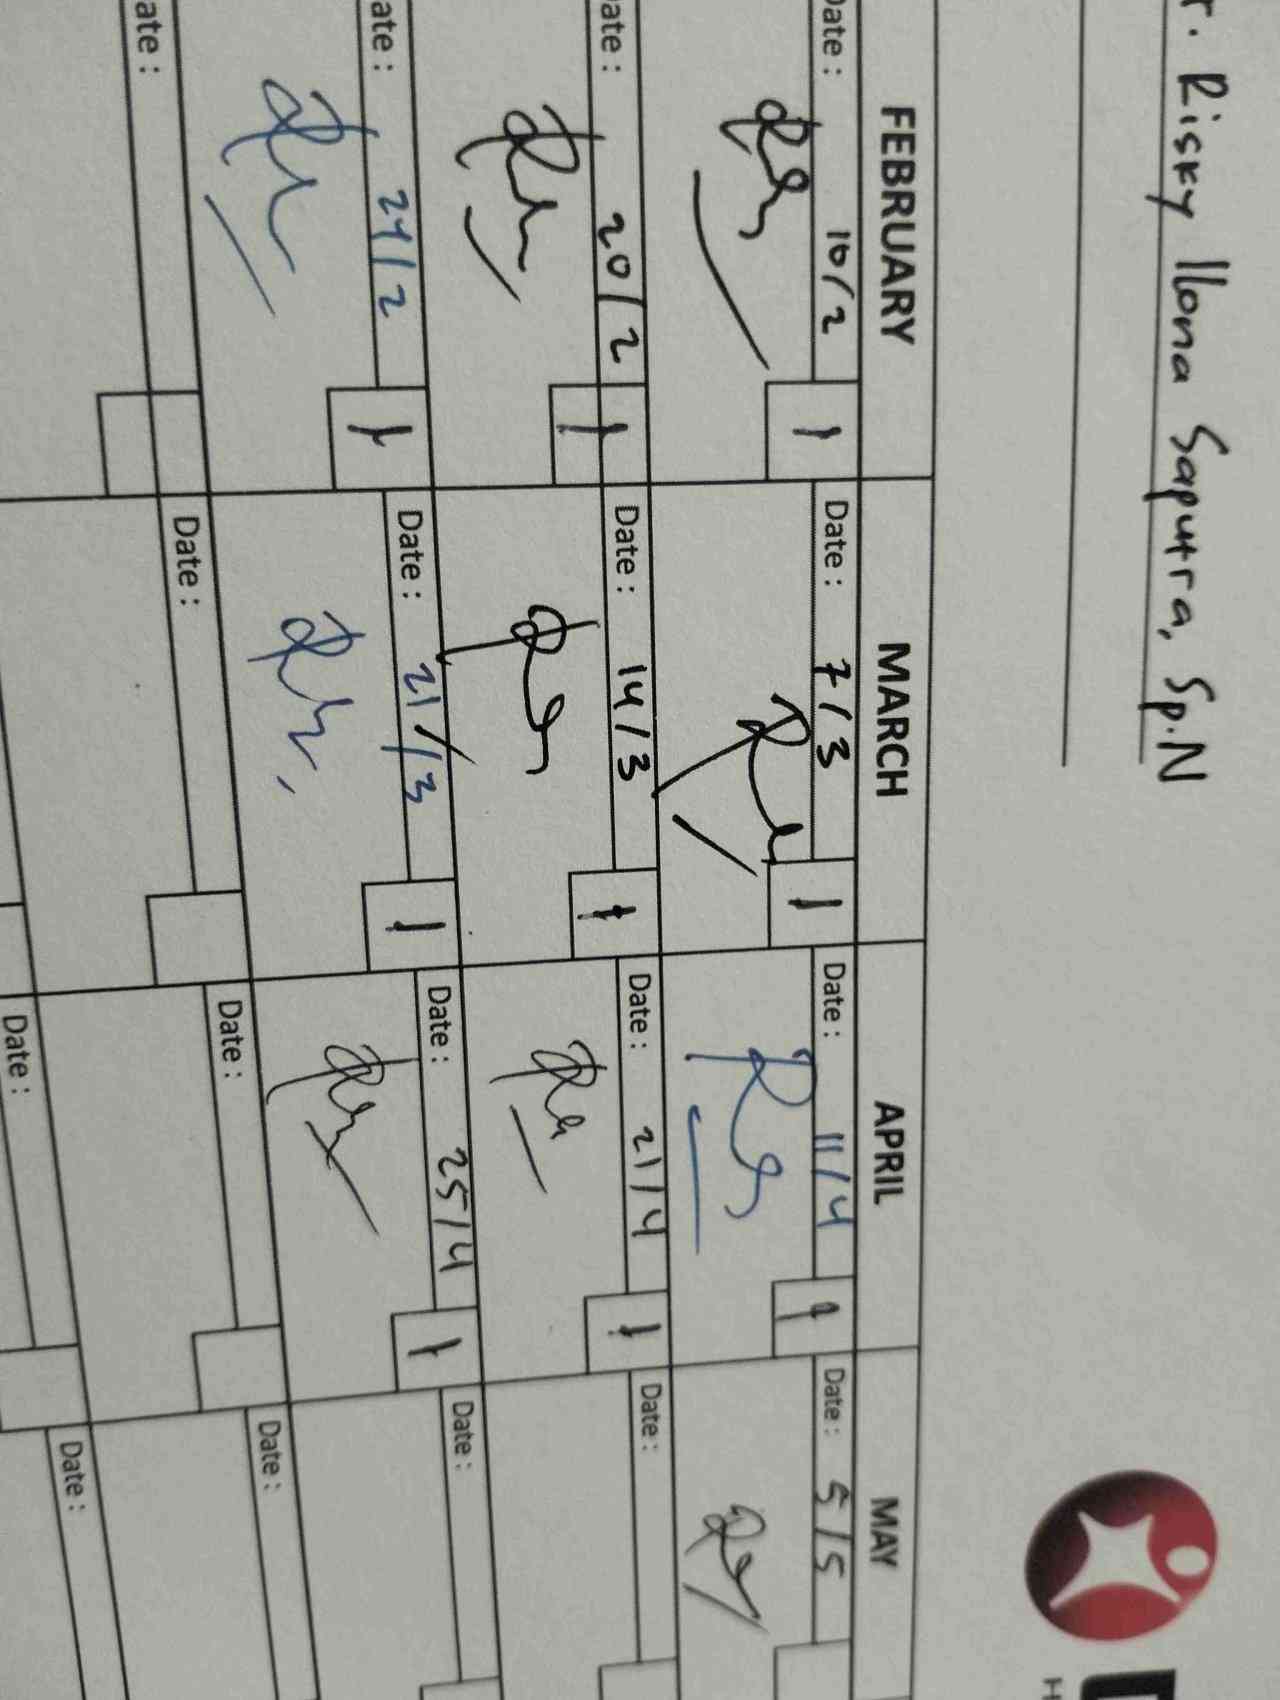 r. Risky Ilona Saputra, Sp.N
FEBRUARY MARCH APRIL MAY
Date : 10/2 1 Date : 7/3 1 Date : 11/4 1 Date : 5/5
ate : 20/2 1 Date : 14/3 1 Date : 21/4 1 Date :
ate : 24/2 1 Date : 21/3 1 Date : 25/4 1 Date :
ate : Date : Date : Date :
Date : Date :
H